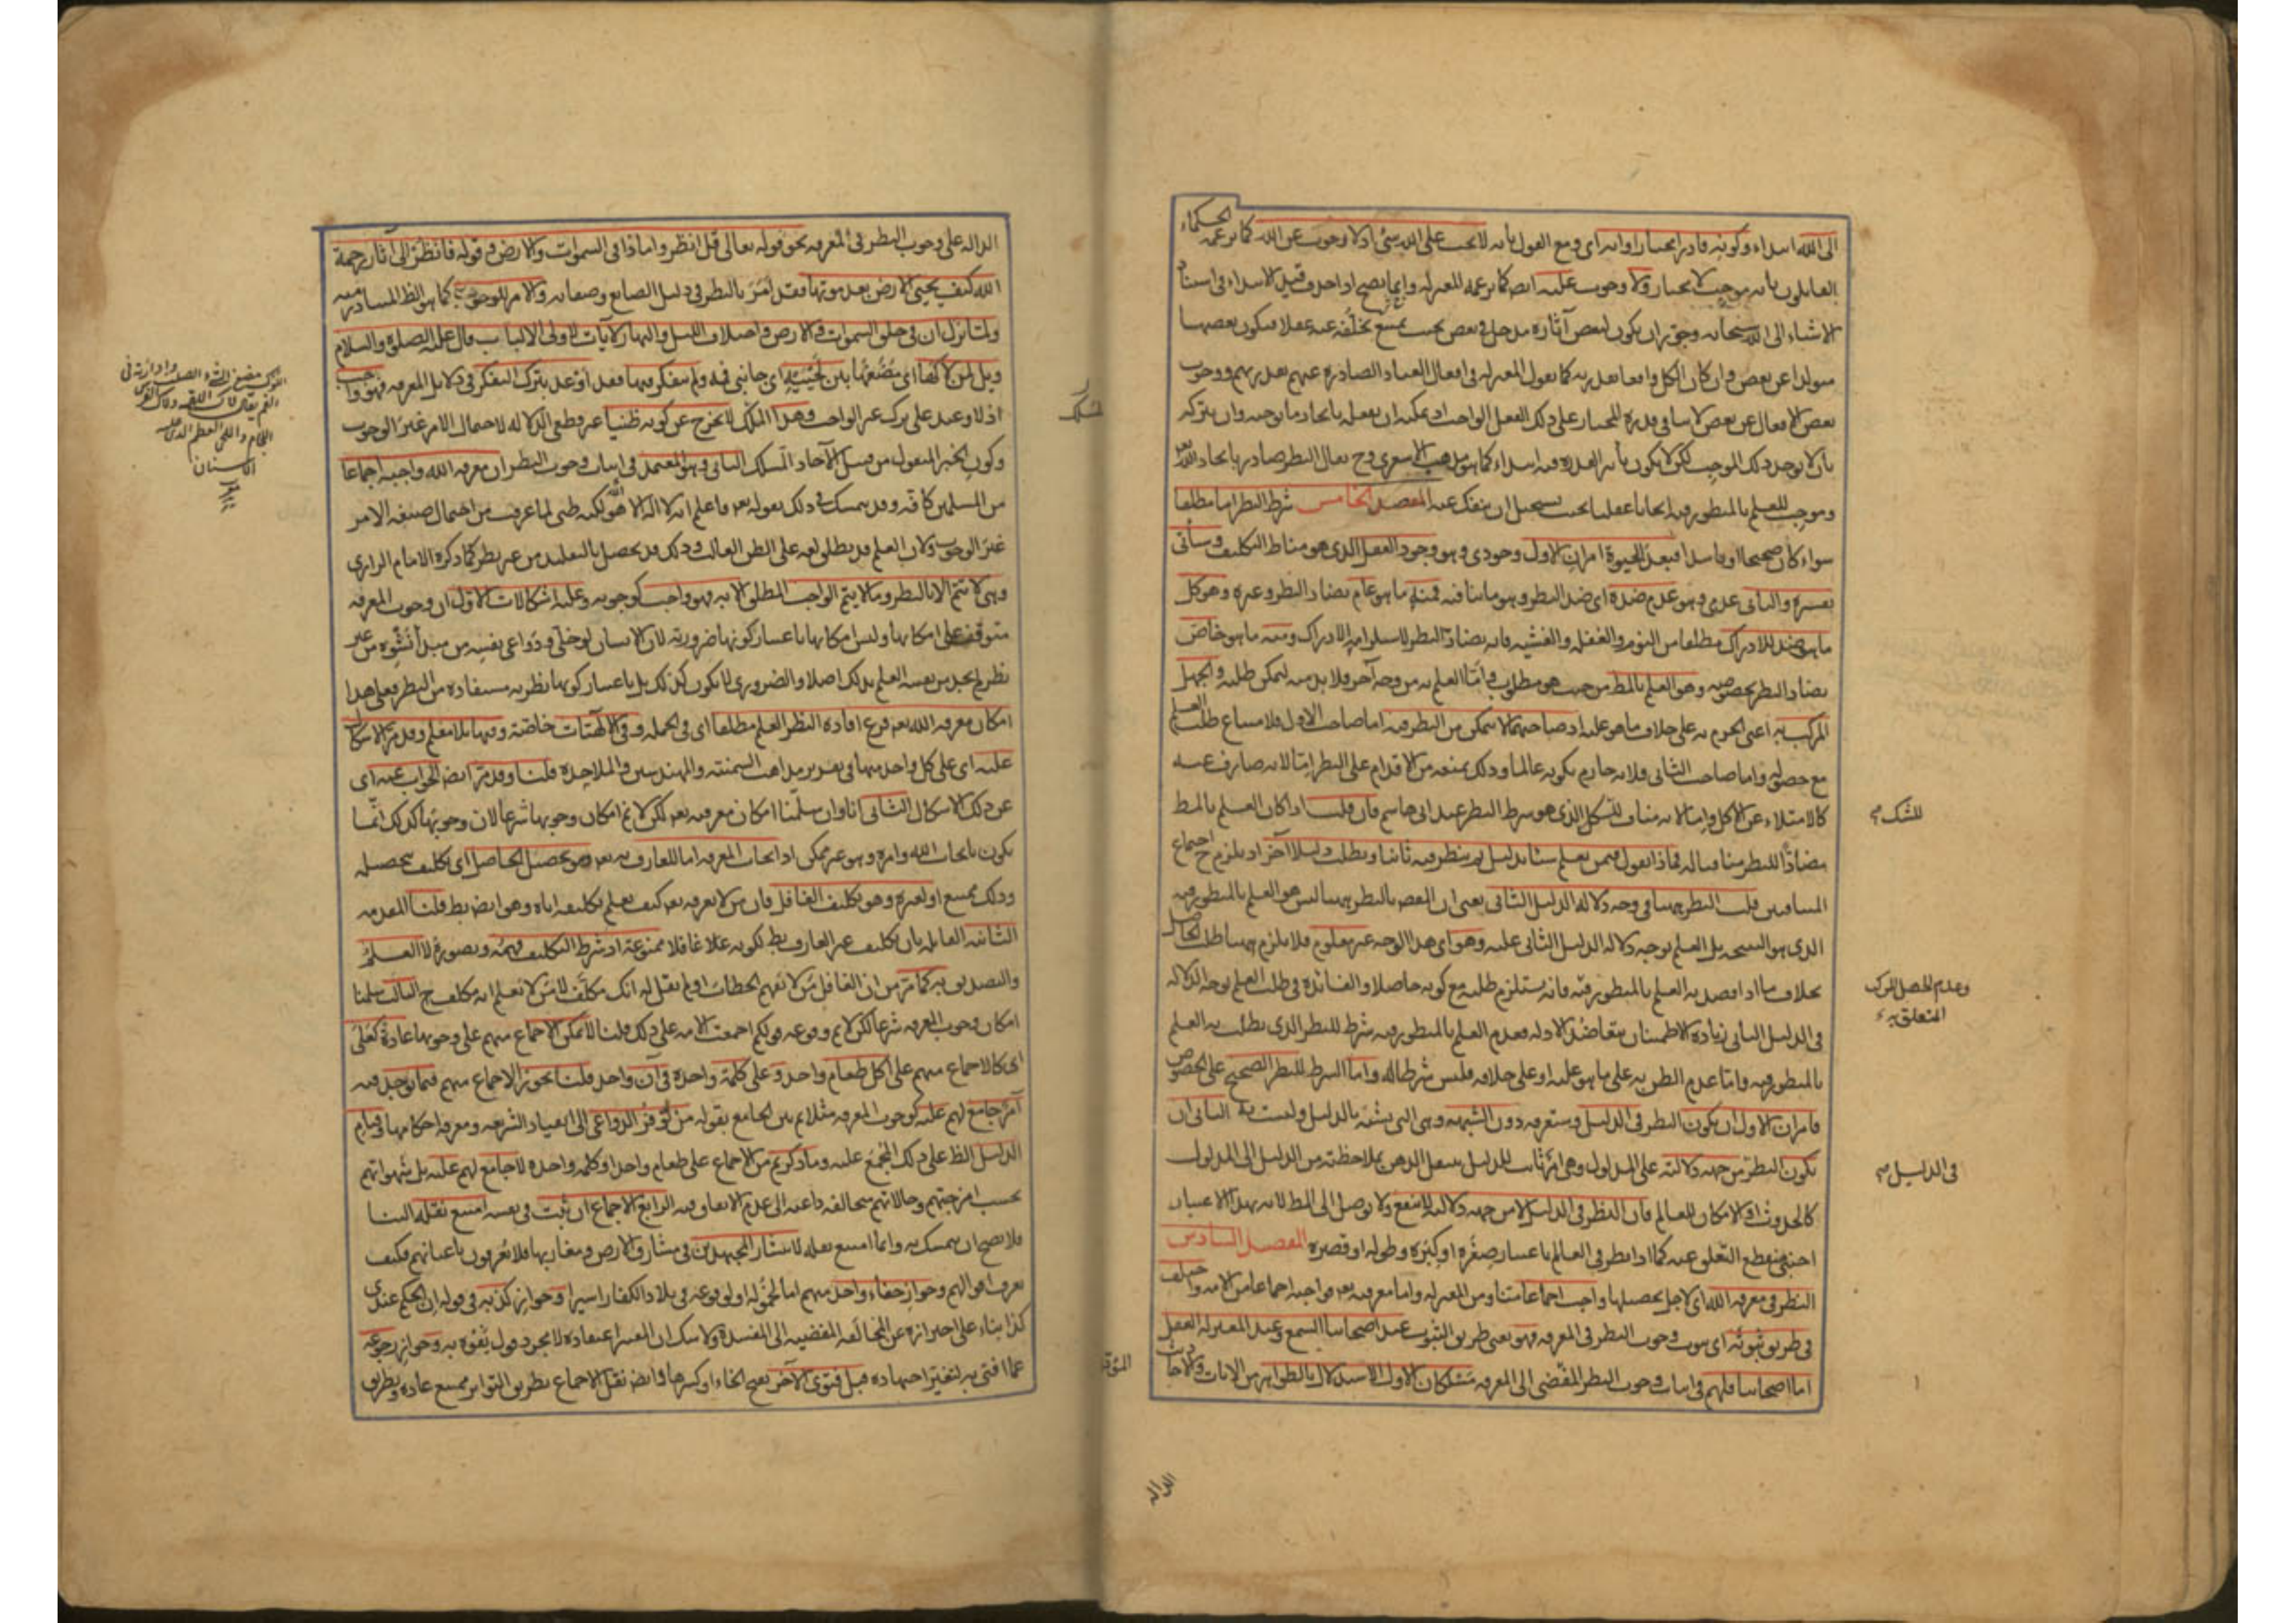 الى الله ابتداء وكونه قادرا مختارا وانه اى ومع القول بانه لا يجب على الله شئ اذ لا وجوب عن الله كما يزعمه الحكماء
القائلون بانه موجب لا مختار ولا وجوب عليه ايضا كما يزعمه المعتزلة وانما يصح اذا حذف قيد الابتداء فى استناد
الاشياء الى الله سبحانه وجوز ان يكون لبعض آثاره مدخل فى بعض بحيث يمتنع تخلفه عنه عقلا فيكون بعضها
متولدا عن بعض وان كان الكل واقعا بقدرته كما يقول المعتزلة فى افعال العباد الصادرة عنهم بقدرتهم ووجوب
بعض الافعال عن بعض لا ينافى قدرة المختار على ذلك الفعل الواجب اذ يمكنه ان يفعله بايجاد ما يوجبه وان يتركه
بان لا يوجد ذلك الموجب لكن لا يكون تأثير القدرة فيه ابتداء كما هو مذهب الاشعرى وح يقال النظر صادر بايجاد الله تعالى
وموجب للعلم بالمنظور فيه ايجابا عقليا بحيث يستحيل ان ينفك عنه المقصد الخامس شرط النظر اما مطلقا
سواء كان صحيحا او فاسدا فبعد الحيوة امران الاول وجودى وهو وجود العقل الذى هو مناط التكليف وسيأتى
تفسيره والثانى عدمى وهو عدم ضده اى ضد النظر وهو ما ينافيه فمنه ما هو عام يضاد النظر وغيره وهو كل
ما هو ضد للادراك مطلقا من النوم والغفلة والغشية فانه يضاد النظر لاستلزامه الادراك ومنه ما هو خاص
يضاد النظر بخصوصه وهو العلم بالمط من حيث هو مطلوب واما العلم به من وجه آخر فلا بد منه ليمكن طلبه والجهل
المركب به اعنى الجزم به على خلاف ما هو عليه اذ صاحبهما لا يتمكن من النظر فيه اما صاحب الاول فلامتناع طلب العلم
مع حصوله واما صاحب الثانى فلانه جازم بكونه عالما وذلك يمنعه من الاقدام على النظر اما لانه صارف عنه
كالامتلاء عن الاكل واما لانه مناف للشك الذى هو شرط النظر عند ابى هاشم فان قلت اذا كان العلم بالمط
مضادا للنظر منافيا له فماذا تقول فيمن يعلم شيئا بدليل ثم ينظر فيه ثانيا ويطلب دليلا آخر اذ يلزم ح اجتماع
المتنافيين قلت النظر ههنا فى وجه دلالة الدليل الثانى يعنى ان المقصود بالنظر ههنا ليس هو العلم بالمنظور فيه
الذى هو النتيجة بل العلم بوجه دلالة الدليل الثانى عليه وهو اى هذا الوجه غير معلوم فلا يلزم ههنا طلب الحاصل
بخلاف ما اذا قصد به العلم بالمنظور فيه فانه يستلزم طلبه مع كونه حاصلا والفائدة فى طلب العلم بوجه الدلالة
فى الدليل الثانى زيادة الاطمئنان بتعاضد الادلة فعدم العلم بالمنظور فيه شرط للنظر الذى يطلب به العلم
بالمنظور فيه واما عدم الظن به على ما هو عليه او على خلافه فليس شرطا له واما الشرط للنظر الصحيح على الخصوص
فامران الاول ان يكون النظر فى الدليل وستعرفه دون الشبهة وهى التى يشتبه بالدليل وليست به الثانى ان
يكون النظر من جهة دلالته على المدلول وهى امر ثابت للدليل ينتقل الذهن بملاحظته من الدليل الى المدلول
كالحدوث او الامكان للعالم فان النظر فى الدليل لا من جهة دلالته لا ينفع ولا يوصل الى المط لانه بهذا الاعتبار
اجنبى منقطع التعلق عنه كما اذا نظر فى العالم باعتبار صغره او كبره وطوله او قصره المقصد السادس
النظر فى معرفة الله اى لاجل تحصيلها واجب اجماعا منا ومن المعتزلة واما معرفته تعالى فواجبة اجماعا من الامة واختلف
فى طريق ثبوته اى ثبوت وجوب النظر فى المعرفة فهو يعنى طريق الثبوت عند اصحابنا السمع وعند المعتزلة العقل
اما اصحابنا فلهم فى اثبات وجوب النظر المفضى الى المعرفة مسلكان الاول الاستدلال بالظواهر من الآيات والاحاديث
للشك صح
وعدم الجهل المركب
المتعلق به
فى الدليل صح
الدالة
الدالة على وجوب النظر فى المعرفة نحو قوله تعالى قل انظروا ماذا فى السموات والارض وقوله فانظر الى آثار رحمة
الله كيف يحيى الارض بعد موتها فقد امر بالنظر فى دليل الصانع وصفاته والامر للوجوب كما هو الظ المتبادر منه
ولما نزل ان فى خلق السموات والارض واختلاف الليل والنهار لآيات لاولى الالباب قال عليه الصلوة والسلام
ويل لمن لاكها اى مضغها بين لحييه اى جانبى فمه ولم يتفكر فيها فقد اوعد بترك التفكر فى دلايل المعرفة فهو واجب
اذ لا وعيد على ترك غير الواجب وهذا المسلك لا يخرج عن كونه ظنيا غير قطعى الدلالة لاحتمال الامر غير الوجوب
وكون الخبر المنقول من قبيل الآحاد المسلك الثانى وهو المعتمد فى اثبات وجوب النظر ان معرفة الله واجبة اجماعا
من المسلمين كافة وقد يتمسك فى ذلك بقوله تعالى فاعلم انه لا اله الا الله لكنه ظنى لما عرفت من احتمال صيغة الامر
غير الوجوب ولان العلم قد يطلق لغة على الظن الغالب وذلك قد يحصل بالتقليد من غير نظر كما ذكره الامام الرازى
وهى لا تتم الا بالنظر وما لا يتم الواجب المطلق الا به فهو واجب كوجوبه وعليه اشكالات الاول ان وجوب المعرفة
متوقف على امكانها وليس امكانها باعتبار كونها ضرورية لان الانسان لو خلى ودواعى نفسه من مبدأ نشوه من غير
نظر لم يجد من نفسه العلم بذلك اصلا والضرورى لا يكون كذلك بل باعتبار كونها نظرية مستفادة من النظر فعلى هذا
امكان معرفة الله تعالى فرع افادة النظر العلم مطلقا اى فى الجملة وفى الالهيات خاصة وفيها بلا معلم وقد مر الاشكال
عليه اى على كل واحد منها فى تقرير مذاهب السمنية والمهندسين والملاحدة قلنا وقد مر ايضا الجواب عنه اى
عن ذلك الاشكال الثانى انا وان سلمنا امكان معرفته تعالى لكن لا نم امكان وجوبها شرعا لان وجوبها كذلك انما
يكون بايجاب الله وامره وهو غير ممكن اذ ايجاب المعرفة اما للعارف به تعالى وهو تحصيل الحاصل اى تكليف بتحصيله
وذلك ممتنع او لغيره وهو تكليف الغافل فان من لا يعرفه تعالى كيف يعلم تكليفه اياه وهو ايضا بط قلنا المقدمة
الثانية القائلة بان تكليف غير العارف بط لكونه غافلا ممنوعة اذ شرط التكليف فهمه وتصوره لا العلم
والتصديق به كما مر من ان الغافل من لا يفهم الخطاب او لم يقل له انك مكلف لا من لا يعلم انه مكلف ح الثالث سلمنا
امكان وجوب المعرفة شرعا لكن لا نم وقوعه قولكم اجمعت الامة على ذلك قلنا لا يمكن الاجماع منهم على وجوبها عادة كعلى
اى كالاجماع منهم على اكل طعام واحد وعلى كلمة واحدة فى آن واحد قلنا يجوز الاجماع منهم فيما يوجد فيه
امر جامع لهم عليه كوجوب المعرفة مثلا ثم بين الجامع بقوله من توفر الدواعى الى انقياد الشريعة ومعرفة احكامها وقيام
الدليل الظ على ذلك المجمع عليه وما ذكرتم من الاجماع على طعام واحد او كلمة واحدة لا جامع لهم عليه بل شهواتهم
بحسب امزجتهم وحالاتهم مخالفة داعية الى عدم الاتفاق فيه الرابع الاجماع ان ثبت فى نفسه امتنع نقله الينا
فلا يصح ان يتمسك به وانما امتنع نقله لانتشار المجتهدين فى مشارق الارض ومغاربها فلا يعرفون باعيانهم فكيف
تعرف اقوالهم وجواز خفاء واحد منهم اما لخموله او لوقوعه فى بلاد الكفار اسيرا وجواز كذبه فى قوله ان الحكم عندى
كذا بناء على احترازه عن المخالفة المفضية الى المفسدة ولا شك ان المعتبر اعتقاده لا مجرد قول يتفوه به وجواز رجوعه
عما افتى به لتغير اجتهاده قبل فتوى الآخر بفتح الخاء او كسرها وايضا نقل الاجماع بطريق التواتر ممتنع عادة وبطريق
اللوك مضغ الشئ الصلب وادارته فى
الفم يقال لاك اللقمة ولاك الفرس
اللجام واللحى العظم الذى عليه
الاسنان